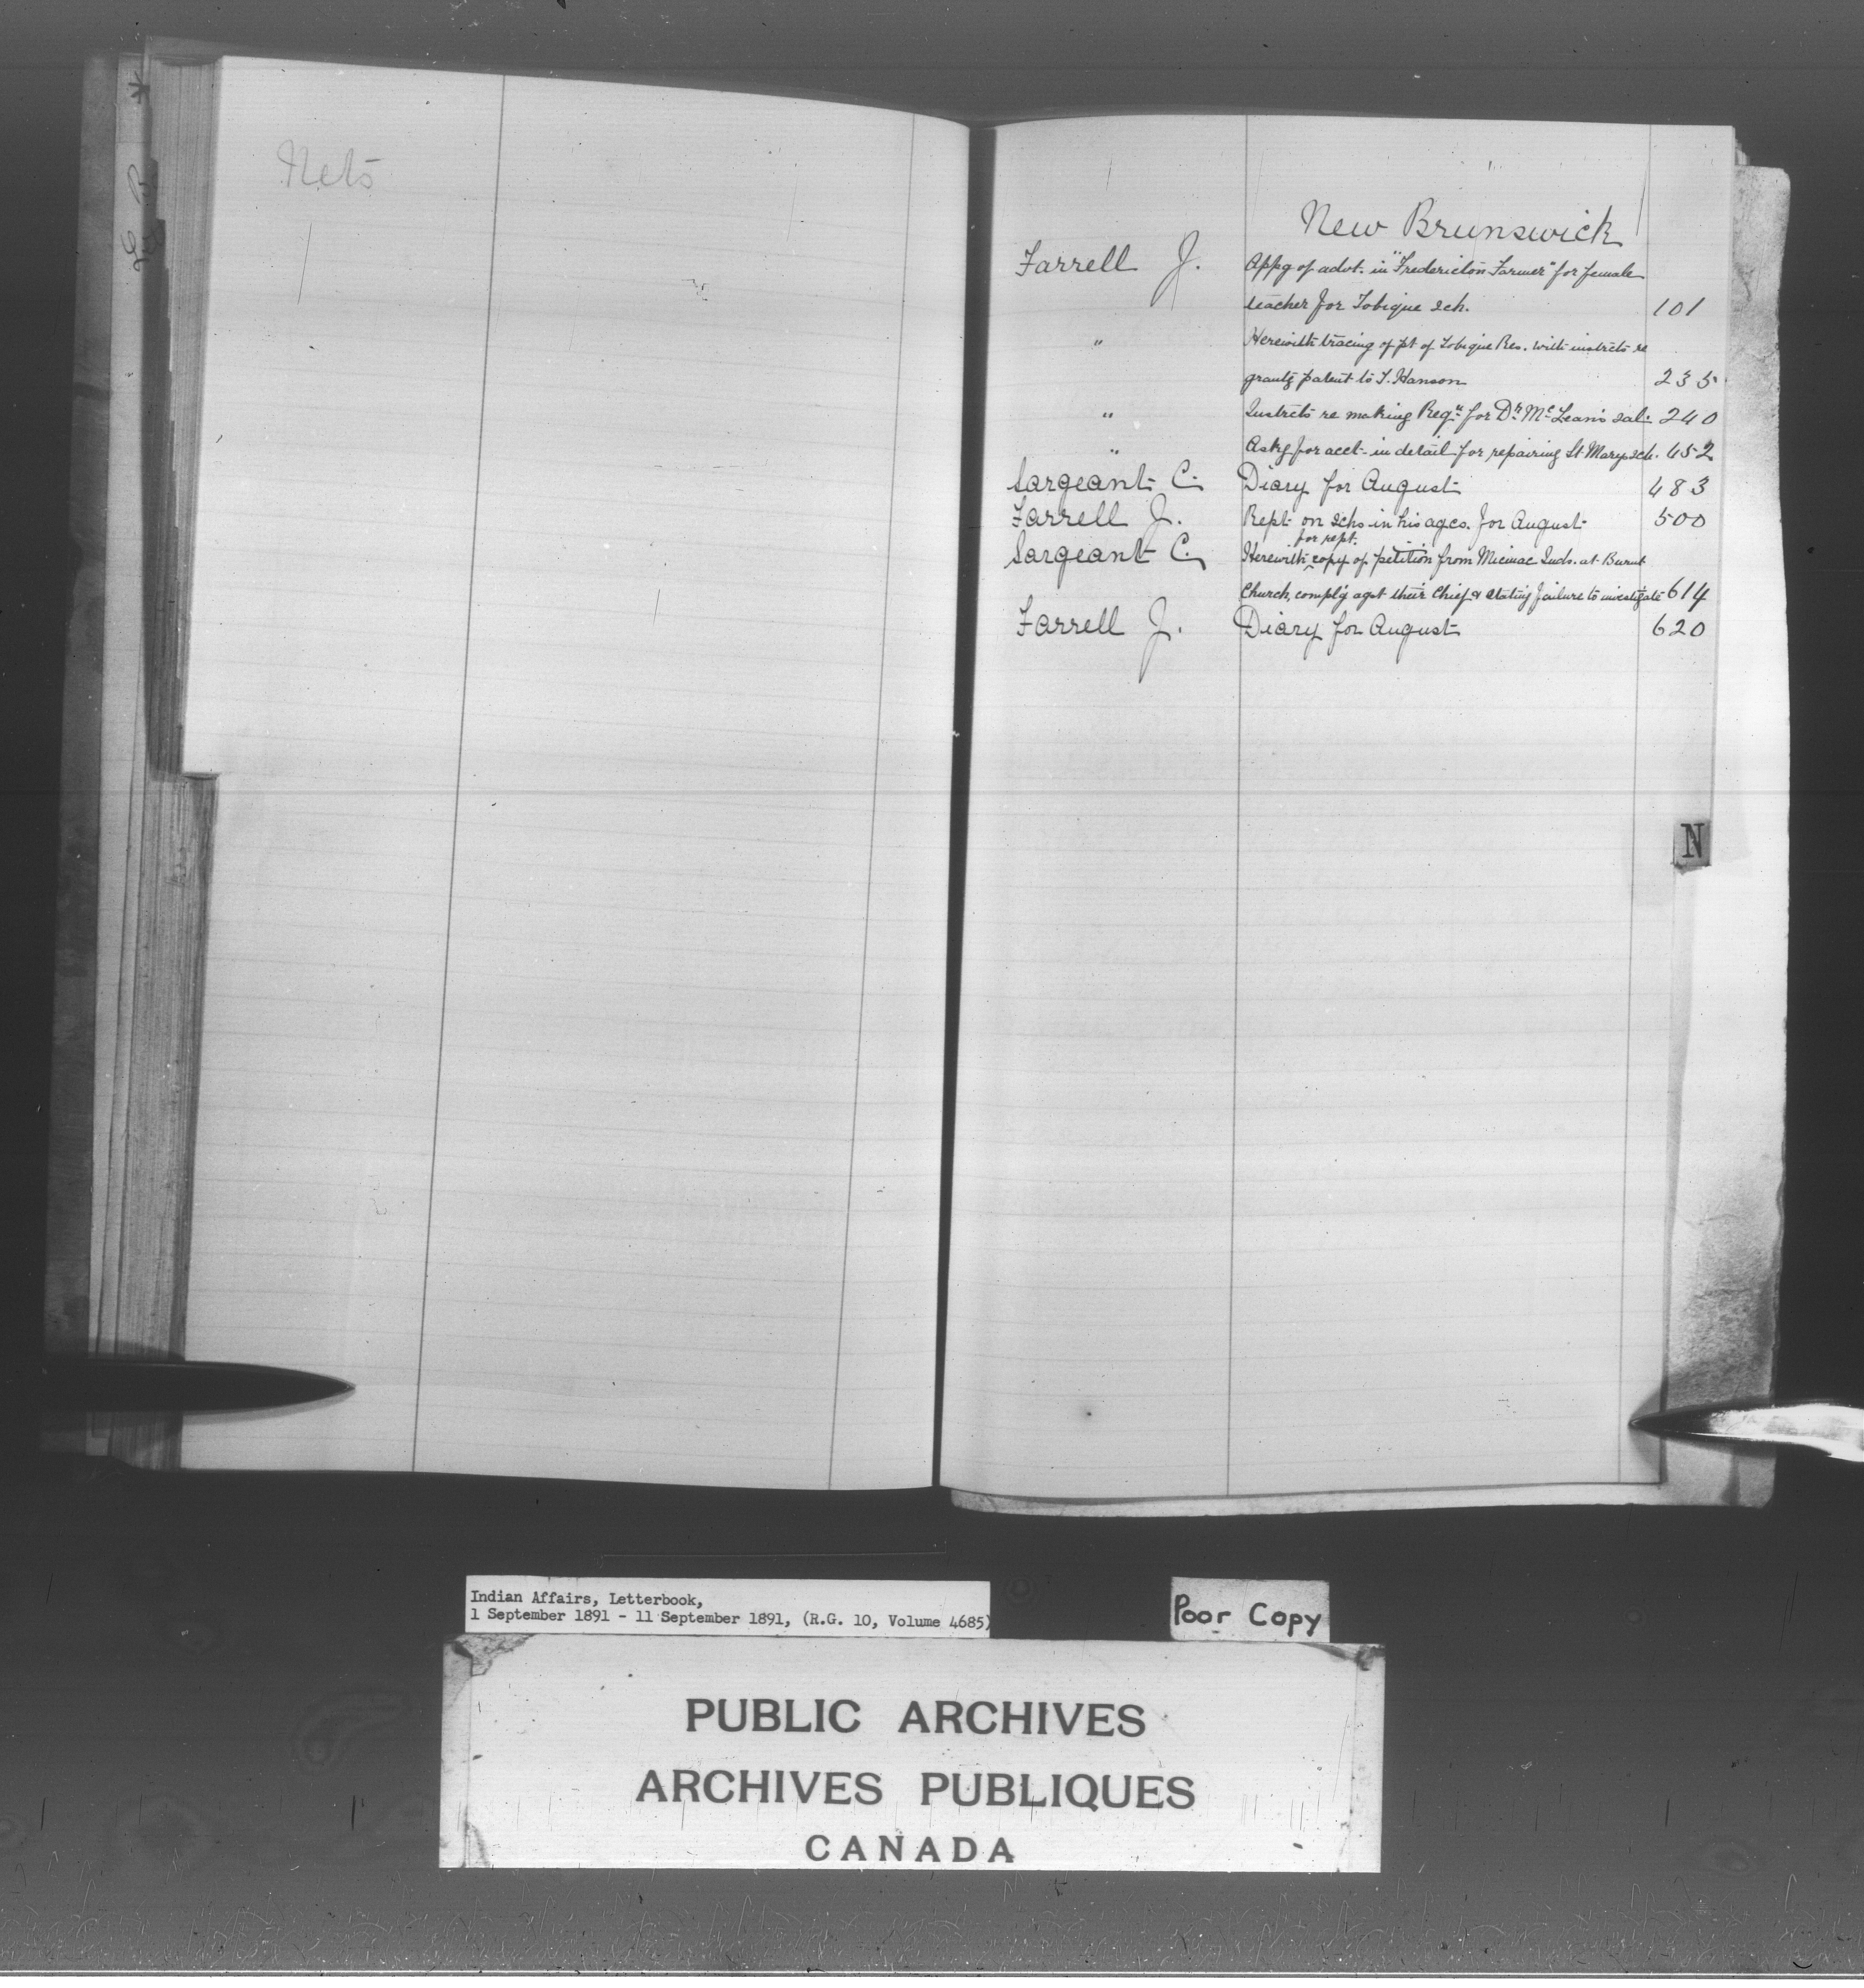 Nets
New Brunswick
Farrell J. Appg of advt. in "Fredericton Farmer" for female
teacher for Tobique sch. 101
" Herewith tracing of pt of Tobique Res. with instrcts re
grantg patent to T. Hanson 235
" Instrcts re making Reqn for Dr. McLean's sal. 240
" Askg for acct. in detail for repairing St. Marys sch. 452
Sargeant C. Diary for August 483
Farrell J. Rept on schs in his ages. for August 500
for rept.
Sargeant C. Herewith copy of petition from Micmac Inds. at Burnt
Church, complg agst their Chief & stating failure to investigate 614
Farrell J. Diary for August 620
N
Indian Affairs, Letterbook,
1 September 1891 - 11 September 1891, (R.G. 10, Volume 4685)
Poor Copy
PUBLIC ARCHIVES
ARCHIVES PUBLIQUES
CANADA